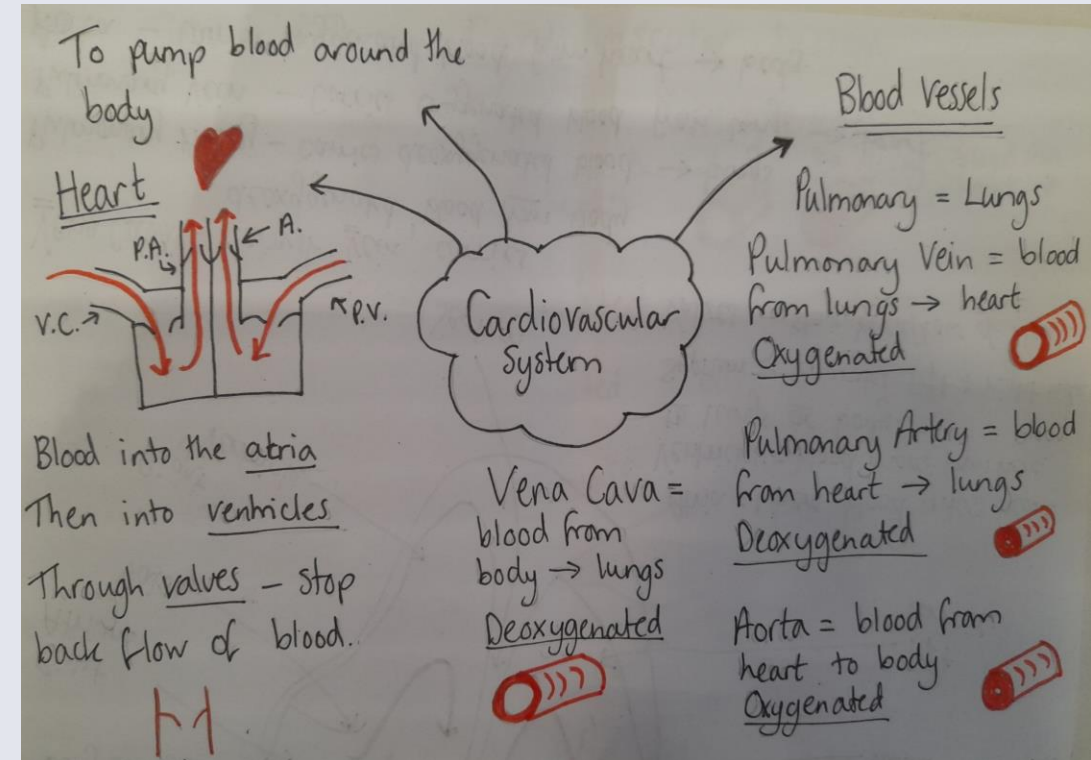 To pump blood around the
body
Heart
P.A.
A.
V.C.
P.V.
Blood into the atria
Then into ventricles
Through valves – stop
back flow of blood.
Cardiovascular
System
Vena Cava =
blood from
body → lungs
Deoxygenated
Blood vessels
Pulmonary = Lungs
Pulmonary Vein = blood
from lungs → heart
Oxygenated
Pulmonary Artery = blood
from heart → lungs
Deoxygenated
Aorta = blood from
heart to body
Oxygenated